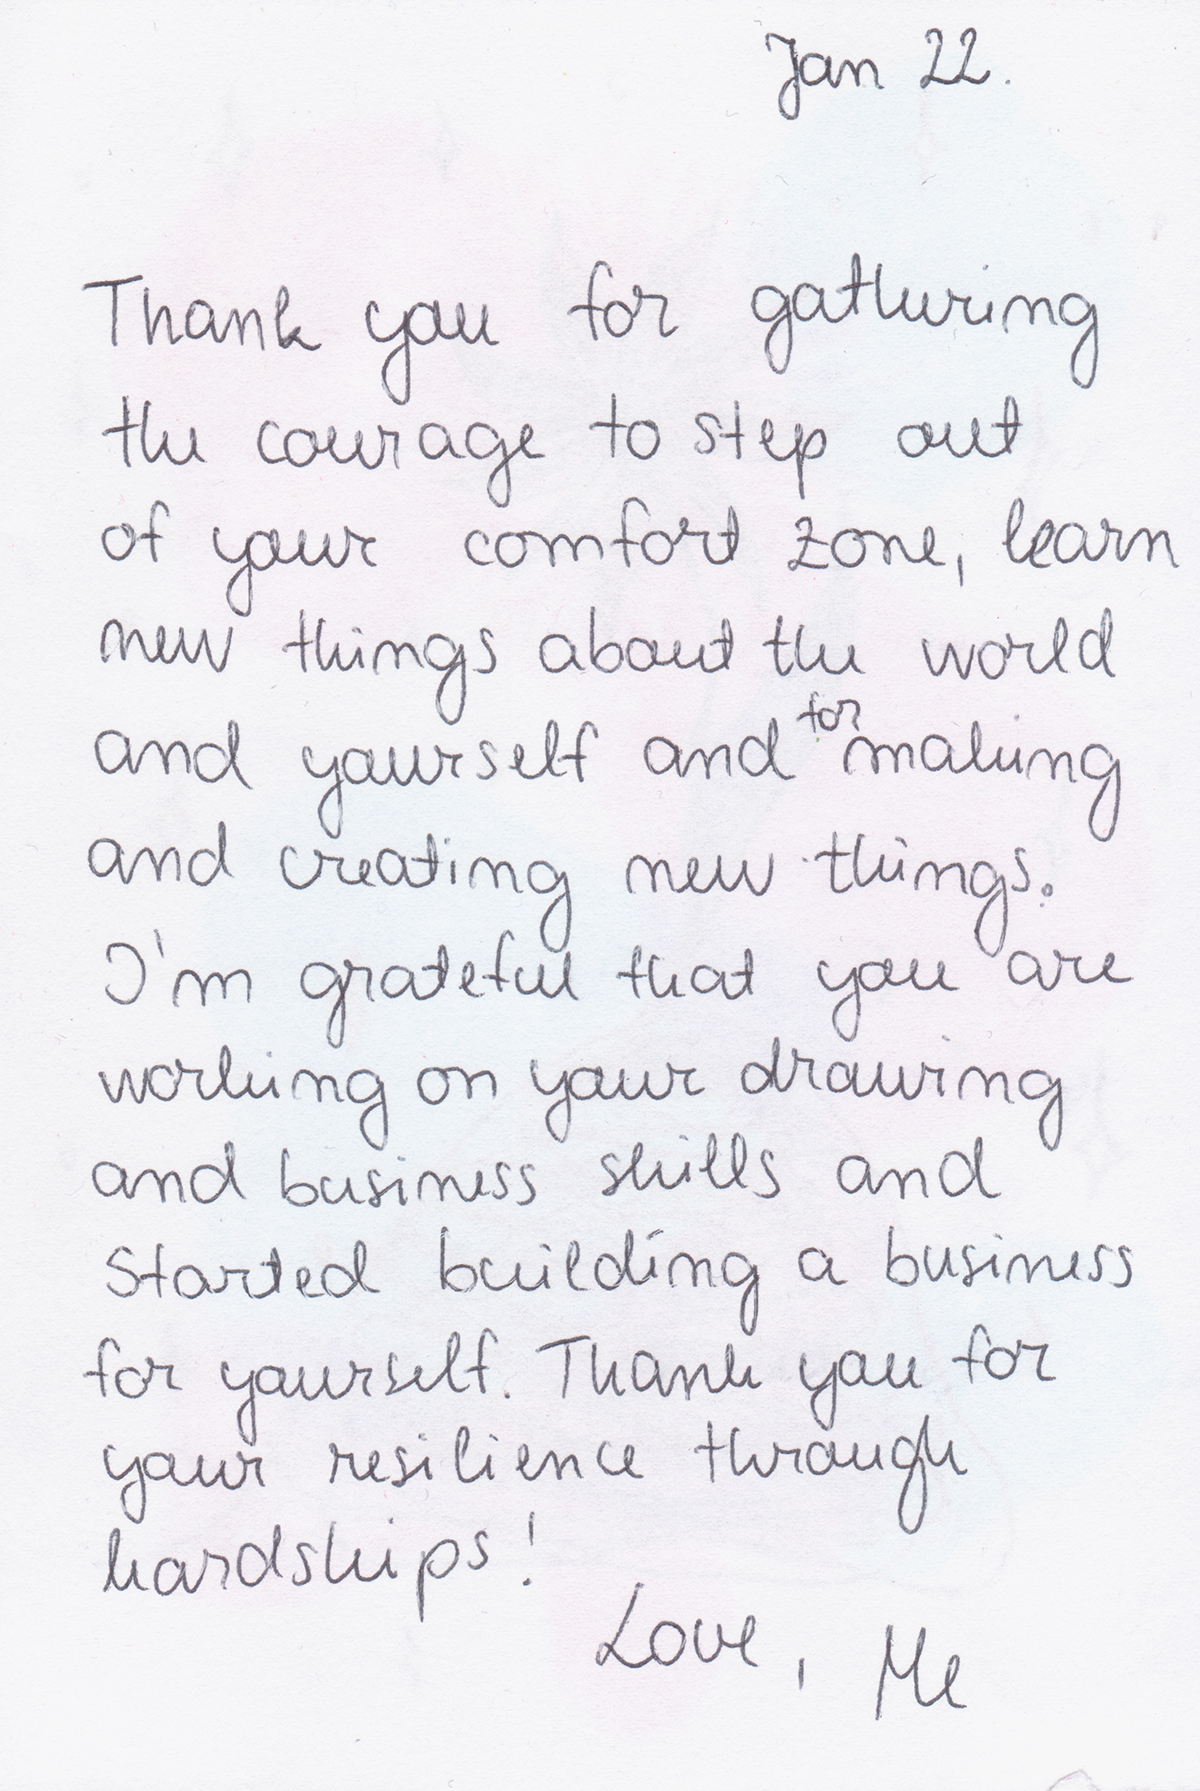 Jan 22.
Thank you for gathering
the courage to step out
of your comfort zone, learn
new things about the world
and yourself and for making
and creating new things.
I'm grateful that you are
working on your drawing
and business skills and
started building a business
for yourself. Thank you for
your resilience through
hardships!
Love, Me